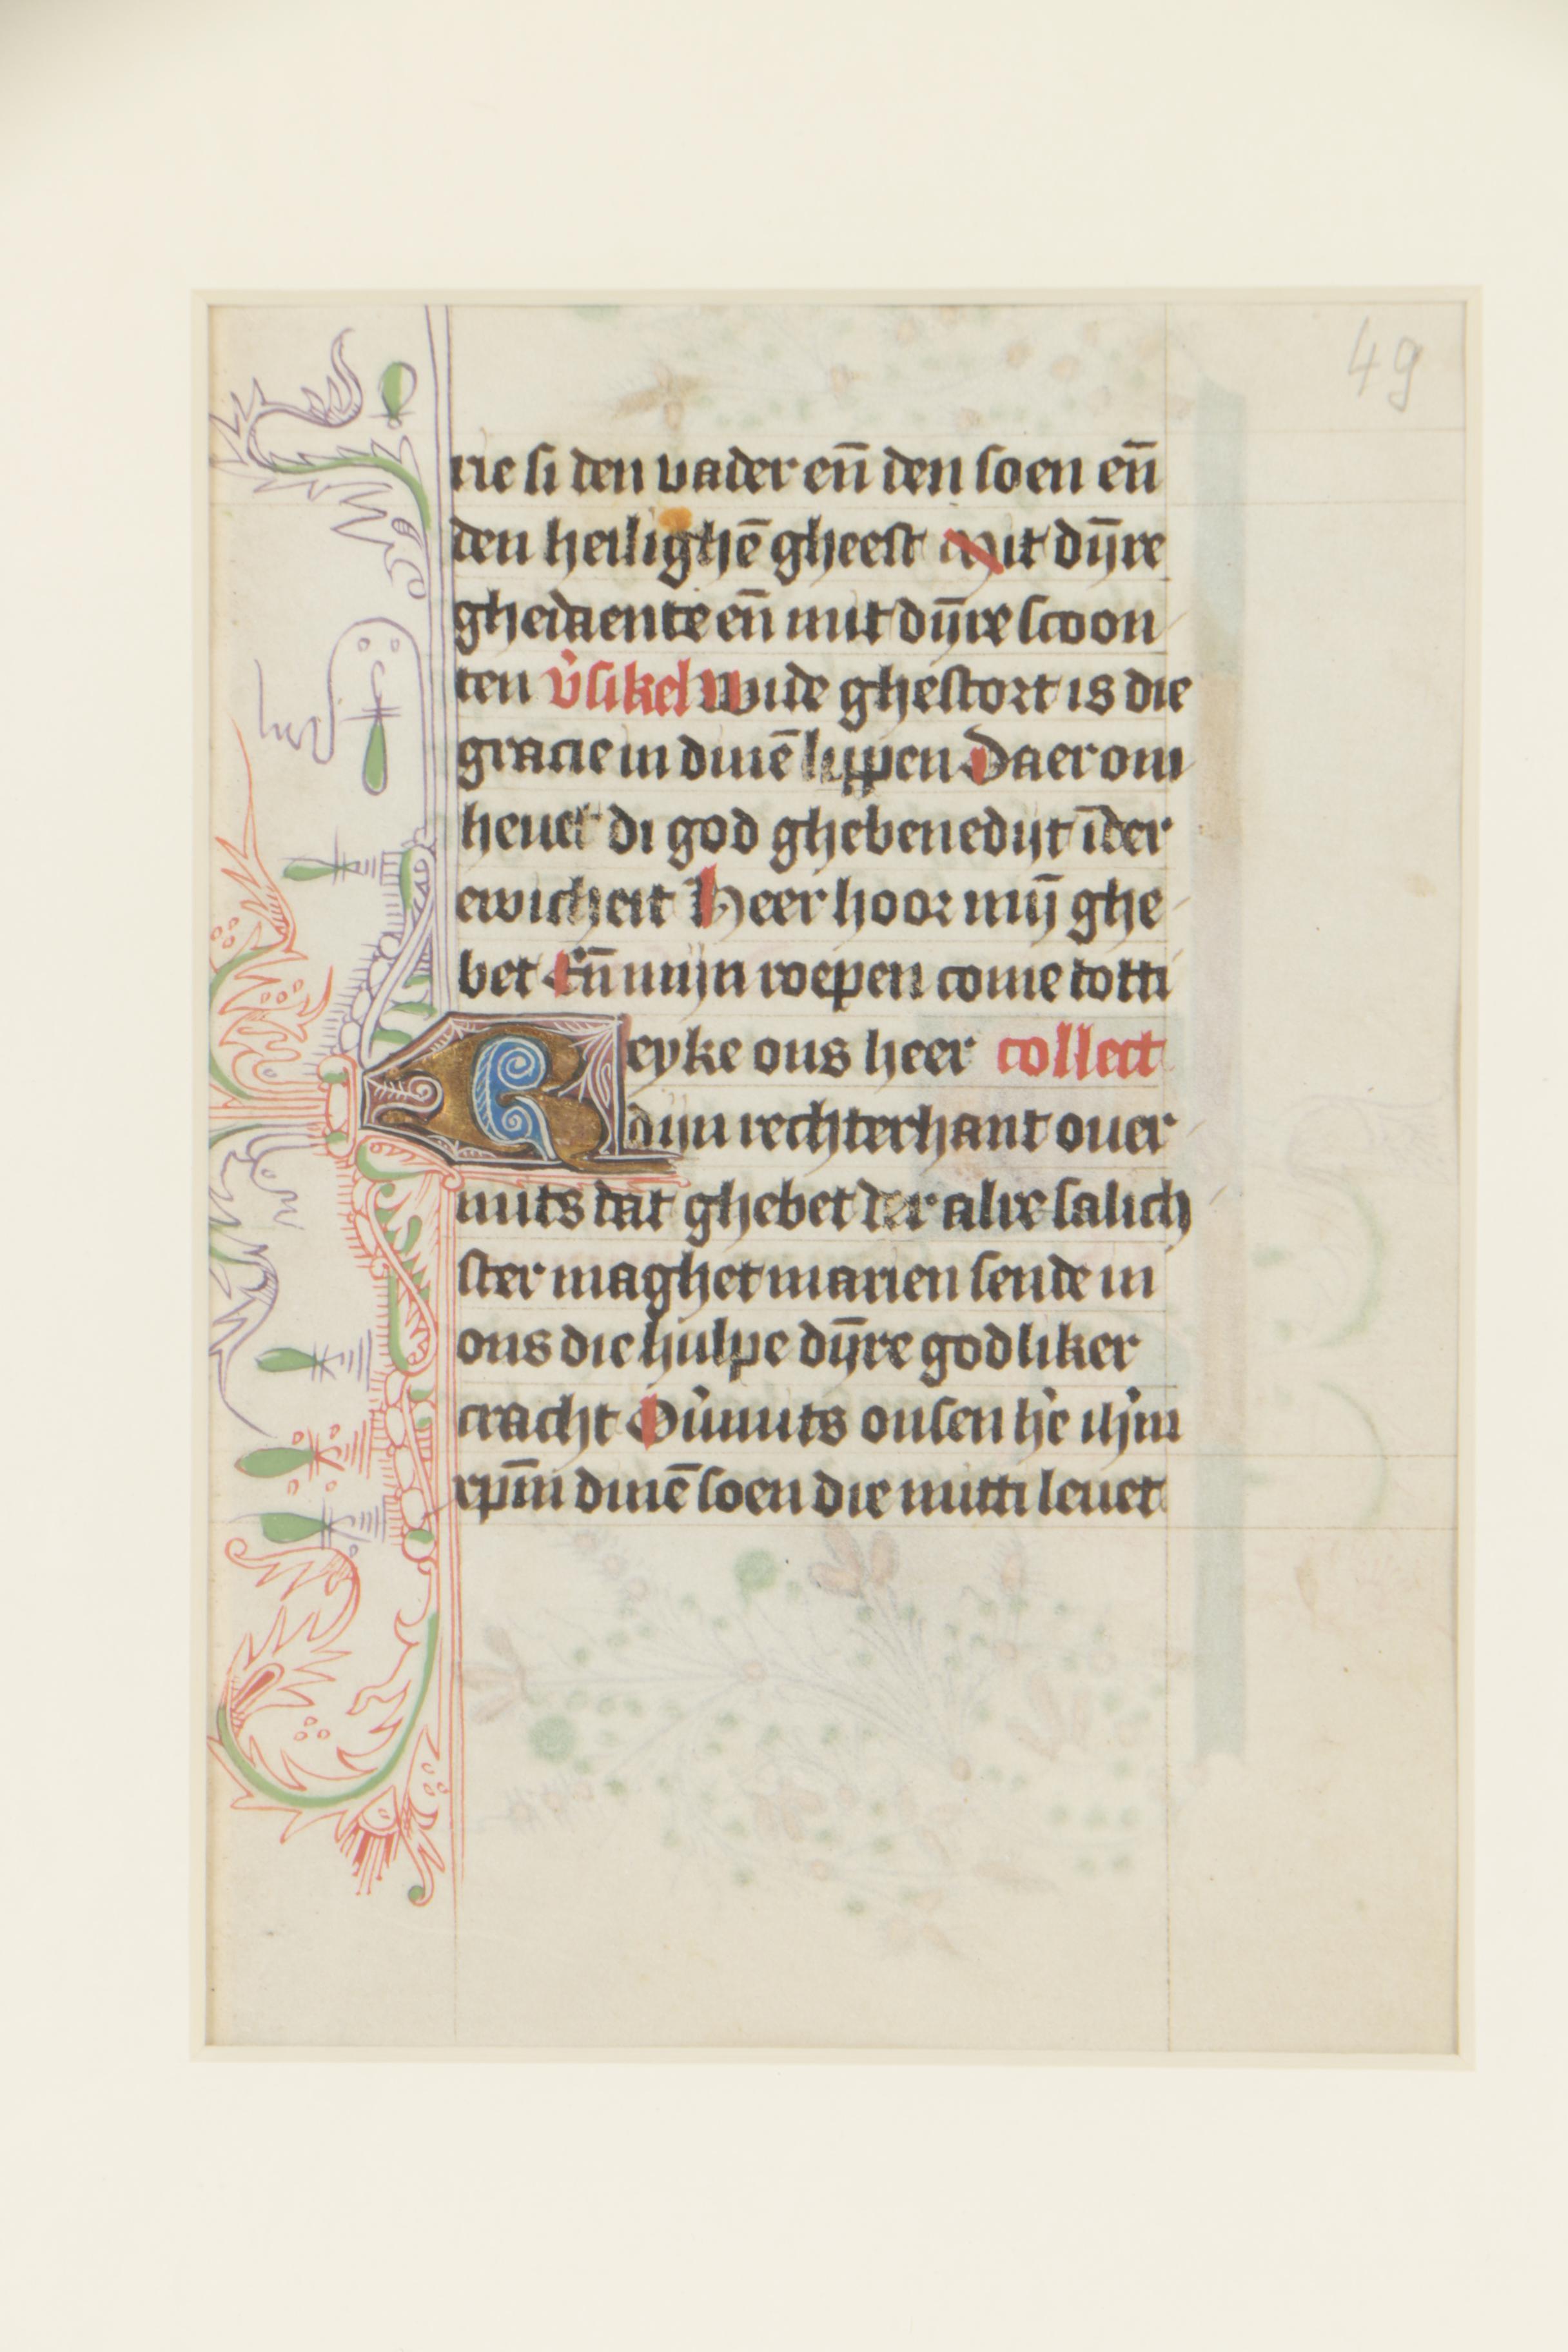 49
rie si den vader en̄ den soen en̄
den heilighē gheest Mit dÿ̄re
ghedaente en̄ mit dÿ̄re scoon
ten v̓sikel Wide ghestort is die
gracie in dinē lyppen Daer om
heuet di god ghebenedijt īder
ewicheit Heer hoor mijn̄ ghe
bet En̄ mijn roepen come totti
Reyke ons heer collect
dijn rechterhant ouer
mits dat ghebet der alre salich
ster maghet marien sende in
ons die hulpe dÿ̄re godliker
cracht Ou̓mits onsen he̓ ih̓m
xpm̄ dinē soen die mitti leuet